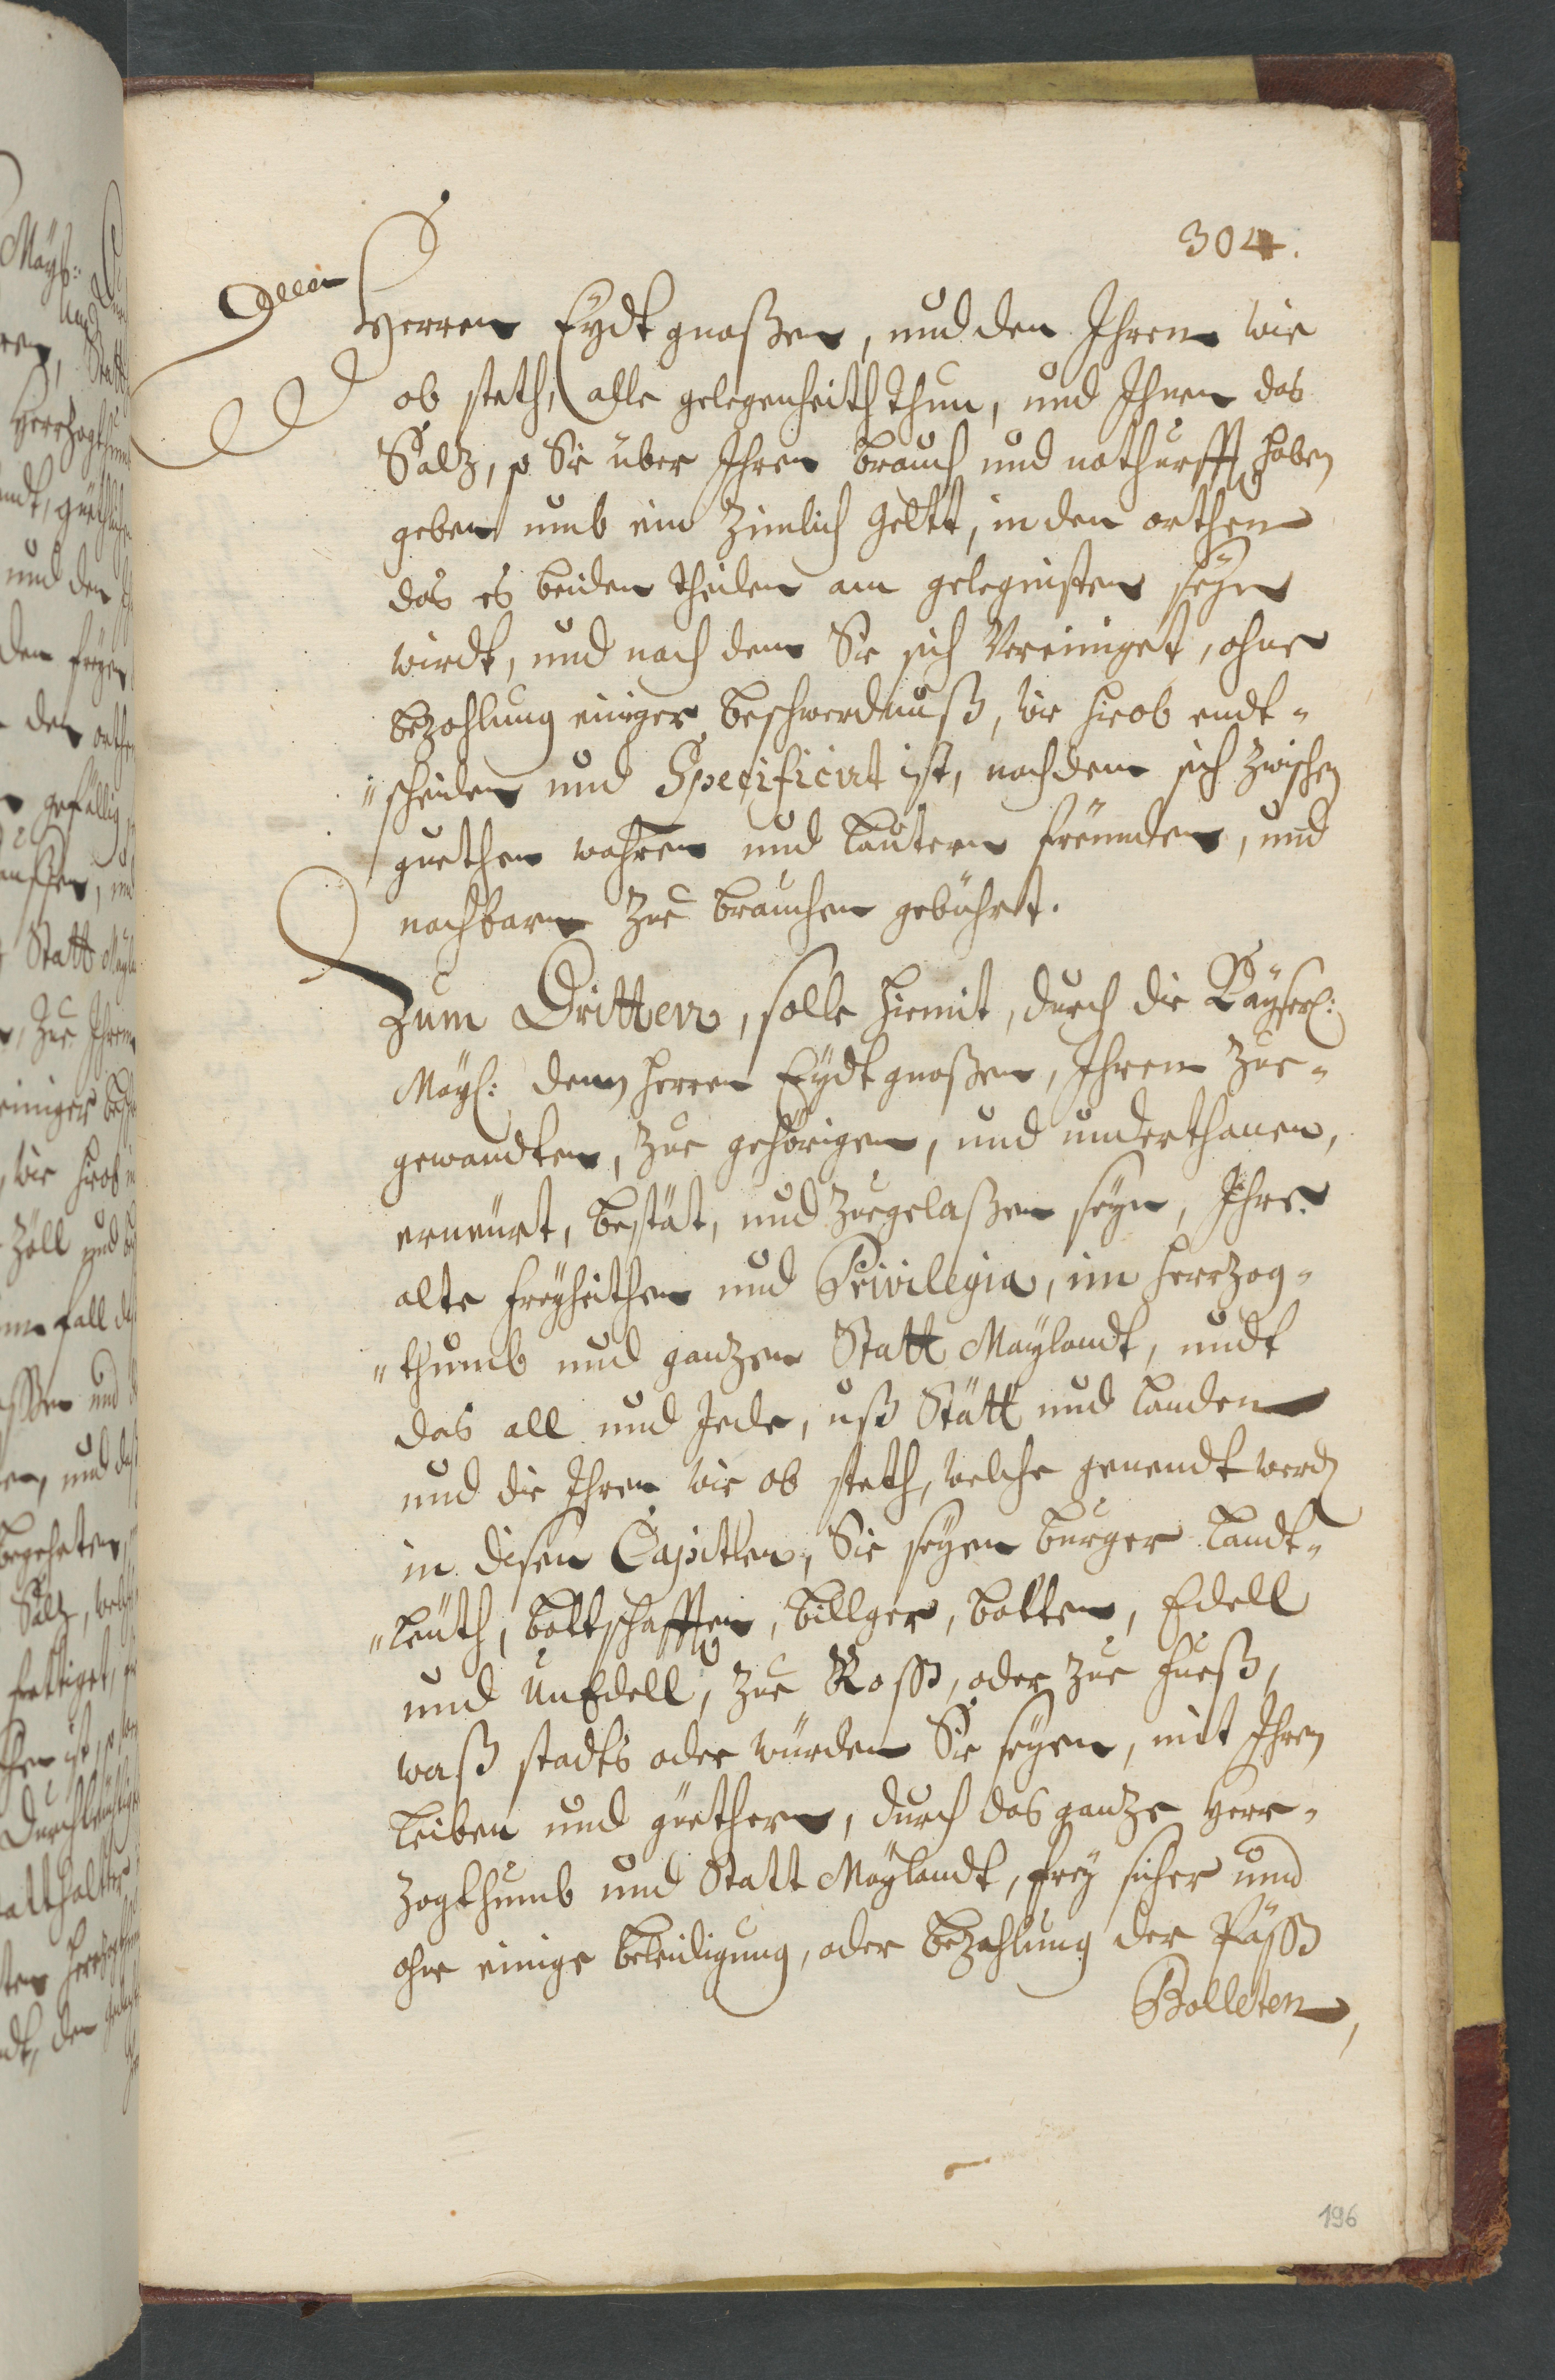 304.
Herren Eydtgnoßen, und den Ihren wie
ob steth, alle gelegenheith thun, und Ihnen das
Saltz, so Sie über Ihren brauch und nothurfft haben
geben umb ein zimlich geltt, in den orthen
das es beiden theilen am gelegnisten seyn
wirdt, und nach dem Sie sich Vereiniget, ohne
bezahlung einiger beschwerdnuß, wie hieob endt-
"scheiden und Specificirt ist, nachdem sich zwischen
guethen wahren und lautern fründen, und
nachbarn zue brauchen gebührt.
Zum Dritten, solle hiemit, durch die Kayserl:
Mayl: denn herren Eydtgnoßen, Ihren zue-
gewandten, zue gehörigen, und underthanen,
erneürt, bestät, und zuegelaßen seyn, Ihre
alte freyheithen und Privilegia, im herzog-
"thumb und ganzen Statt Maylandt, undt
das all und Jede, uß Stätt und landen
und die Ihren wie ob steth, welche genendt werden
in disen Capitlen, Sie seyen burger landt-
"leüth, bottschafften, billger, botten, Edell
und UnEdell, zue Ross, oder zue fueß,
waß stadts oder würden Sie seyen, mit Ihren
leiben und güethern, durch das ganze Her-
zogthumb und Statt Maylandt, frey sicher und
ohne einige beleidigung, oder bezahlung der Päss
Bolleten,
196